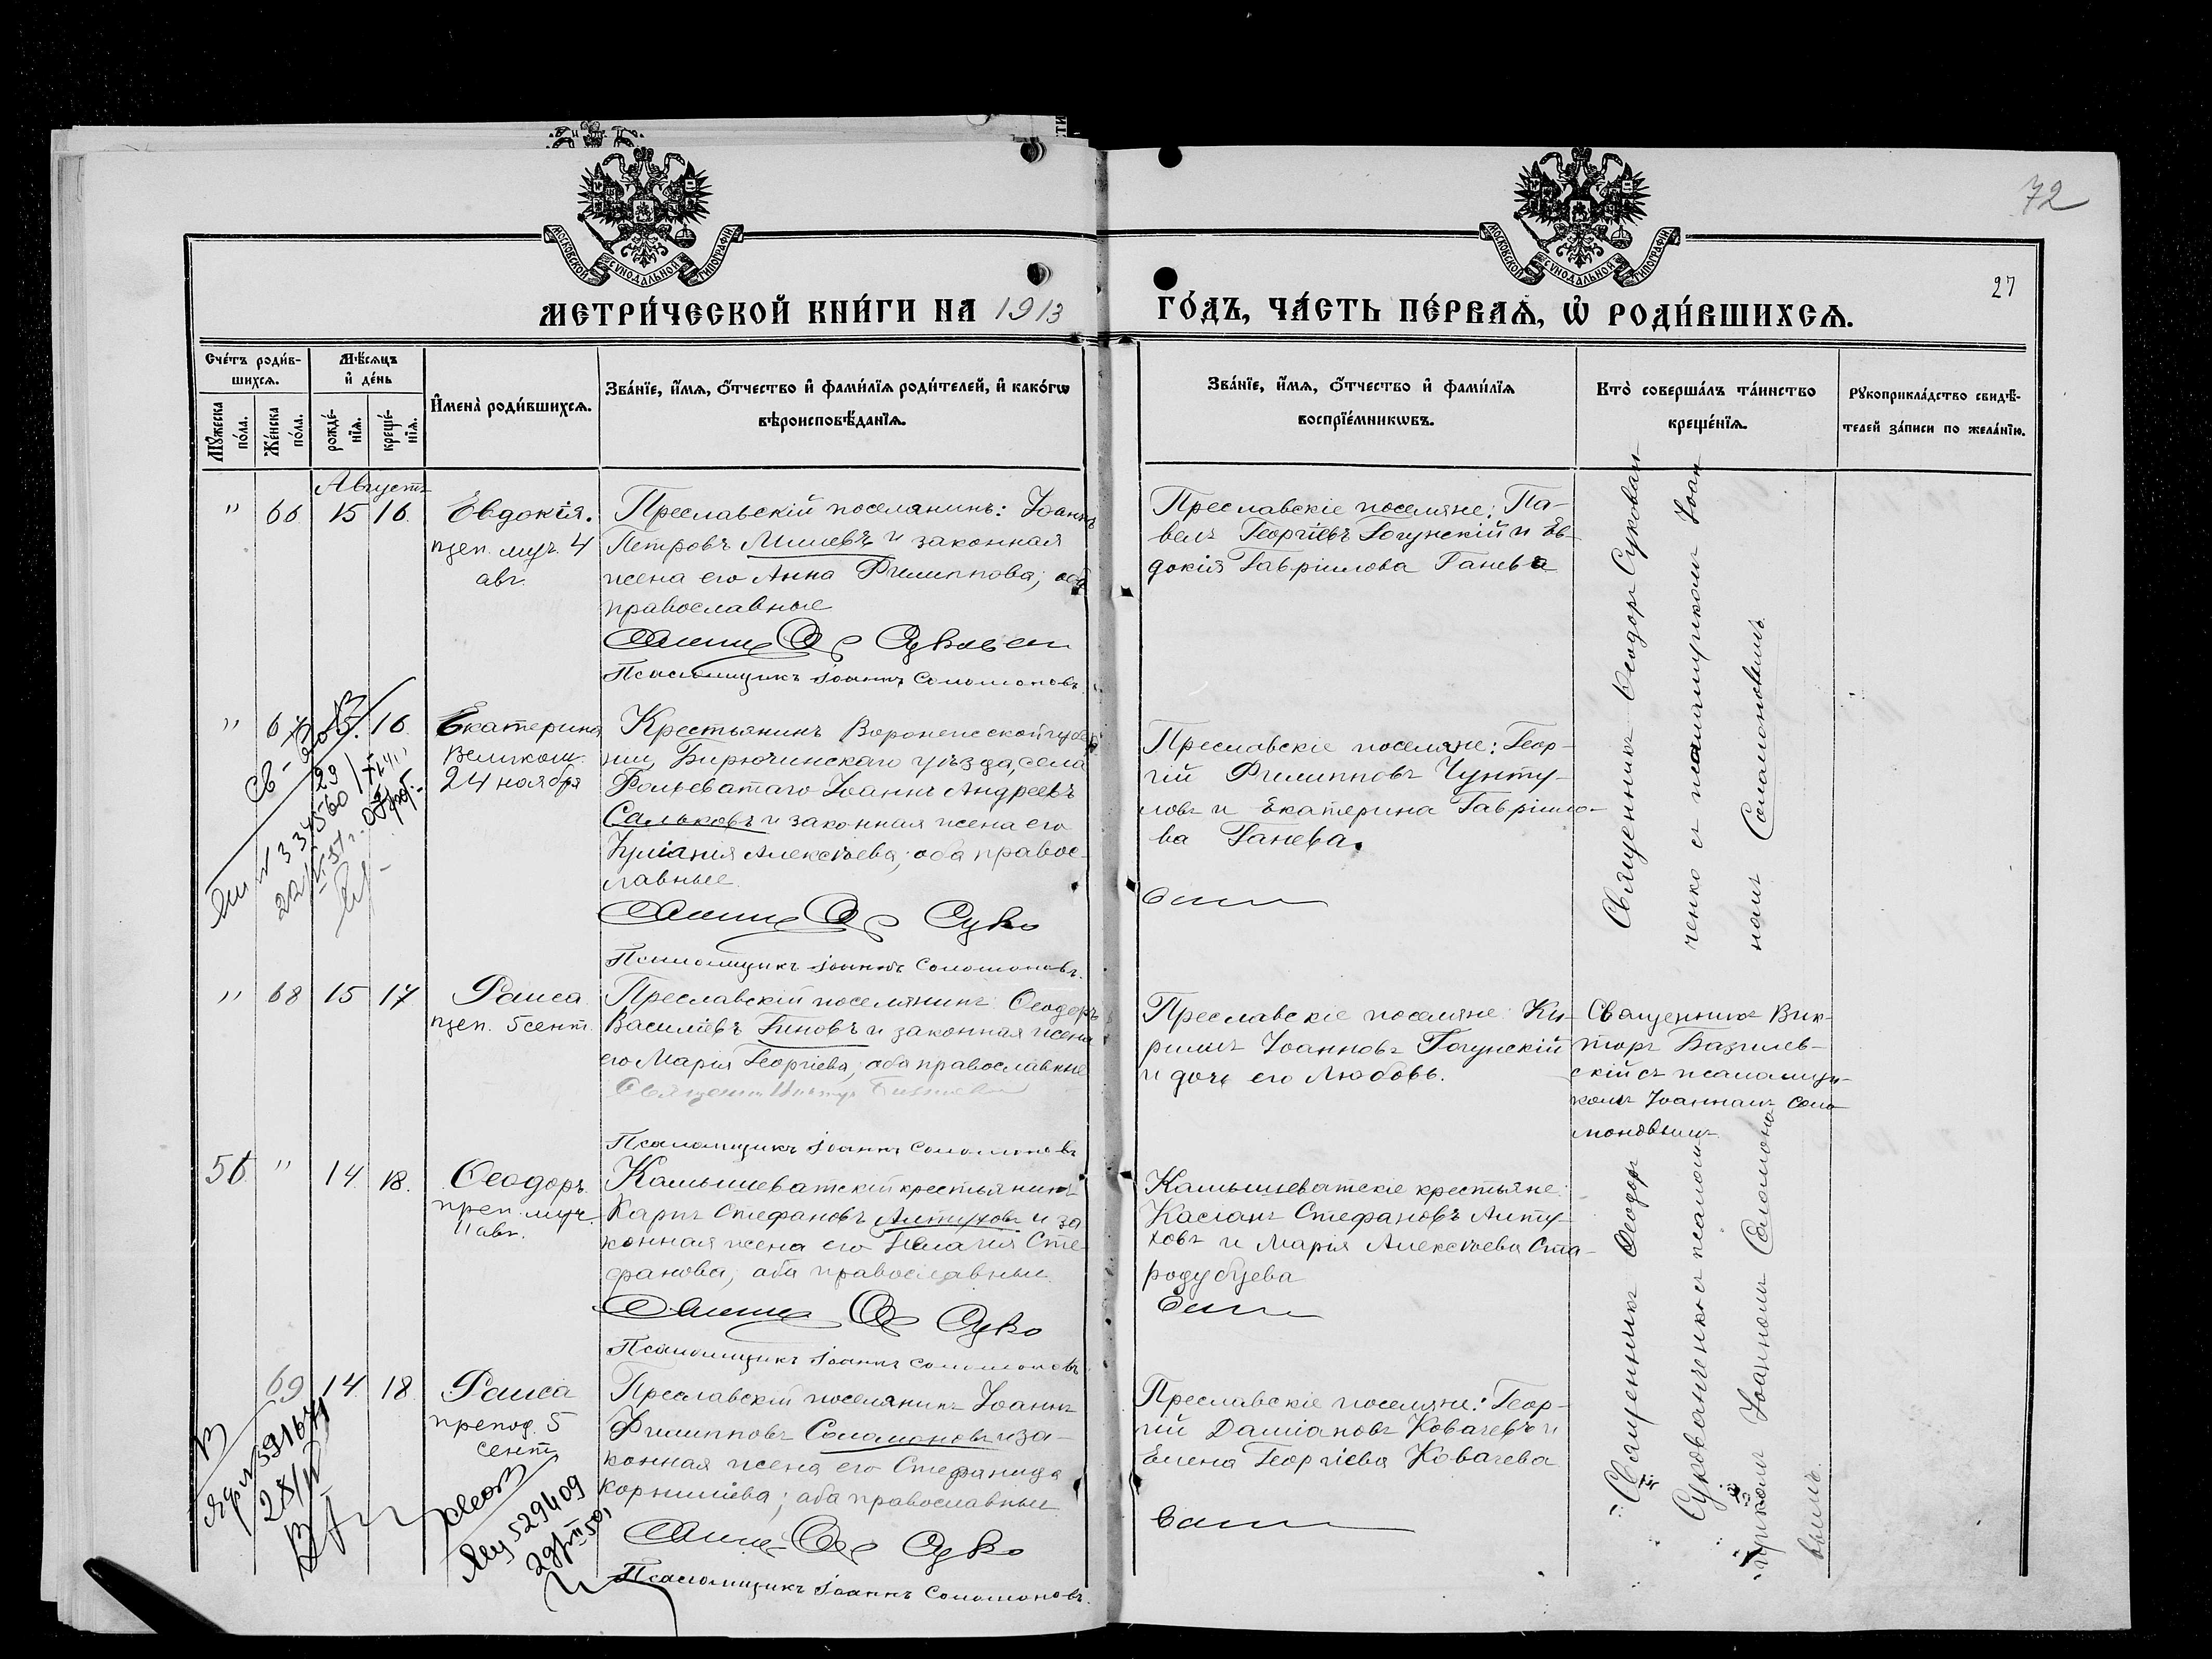 72
27
МОСКОВСКОЙ СУНОДАЛЬНОЙ ТИПОГРАФІИ
МОСКОВСКОЙ СУНОДАЛЬНОЙ ТИПОГРАФІИ
МЕТРИ́ЧЕСКОЙ КНИ́ГИ НА 1913 ГО́ДЪ, ЧА́СТЬ ПЕ́РВАѦ, Ѡ҆ РОДИ́ВШИХСѦ.
Сче́тъ роди́в-
шихсѧ.
Мꙋ́жеска
по́ла.
Же́нска
по́ла.
Мѣ́сѧцъ
и҆ де́нь
рожде́-
нїѧ.
креще́-
нїѧ.
И҆мена̀ роди́вшихсѧ.
Зва́нїе, и҆́мѧ, ѻ҆́тчество и҆ фами́лїѧ роди́телей, и҆ како́гѡ
вѣроисповѣ́данїѧ.
Зва́нїе, и҆́мѧ, ѻ҆́тчество и҆ фами́лїѧ
воспрїе́мникѡвъ.
Кто̀ соверша́лъ та́инство
креще́нїѧ.
Рꙋкоприкла́дство свидѣ́-
телей за́писи по жела́нїю.
Августъ
" 66 15 16
Евдокія.
прп. муч. 4
авг.
Преславскій поселянинъ: Іоаннъ
Петровъ Милевъ и законная
жена его Анна Филиппова; оба
православные
Псаломщикъ Іоаннъ Соломоновъ
Преславскіе поселяне: Па-
велъ Георгіевъ Гогунскій и Ев-
докія Гавріилова Ганева
Священникъ Ѳеодоръ Сукован-
ченко съ псаломщикомъ Іоан-
номъ Соломоновымъ.
" 67 15 16
Екатерина
Великом.
24 ноября
Крестьянинъ Воронежской губер-
ніи, Бирюченскаго уѣзда, села
Фольеватаго Іоаннъ Андреевъ
Сальковъ и законная жена его
Іуліанія Алексѣева; оба правос-
лавные.
Псаломщикъ Іоаннъ Соломоновъ.
Преславскіе поселяне: Геор-
гій Филипповъ Чунту-
ловъ и Екатерина Гавріило-
ва Ганева.
" 68 15 17
Раиса
прп. 5 сент.
Преславскій поселянинъ Ѳеодоръ
Василіевъ Гиновъ и законная жена
его Марія Георгіева, оба православные
Псаломщикъ Іоаннъ Соломоновъ
Преславскіе поселяне: Ки-
риллъ Іоанновъ Гогунскій
и дочь его Любовь.
Священникъ Вик-
торъ Базилев-
скій съ псаломщи-
комъ Іоанномъ Соло-
моновымъ
56 " 14 18.
Ѳеодоръ
преп. муч.
11 авг.
Камышеватскій крестьянинъ
Карпъ Стефановъ Алтуховъ и за-
конная жена его Пелагія Сте-
фанова, оба православные.
Псаломщикъ Іоаннъ Соломоновъ
Камышеватскіе крестьяне:
Касіанъ Стефановъ Алту-
ховъ и Марія Алексѣева Ста-
родубцева
Священникъ Ѳеодоръ
Сукованченко съ псалом-
щикомъ Іоанномъ Соломоно-
вымъ.
69 14 18
Раиса
препод. 5
сент.
Преславскій поселянинъ Іоаннъ
Филипповъ Соломоновъ и за-
конная жена его Стефанида
Корниліева; оба православные
Псаломщикъ Іоаннъ Соломоновъ.
Преславскіе поселяне: Геор-
гій Даміановъ Ковачевъ и
Елена Георгіева Ковачева